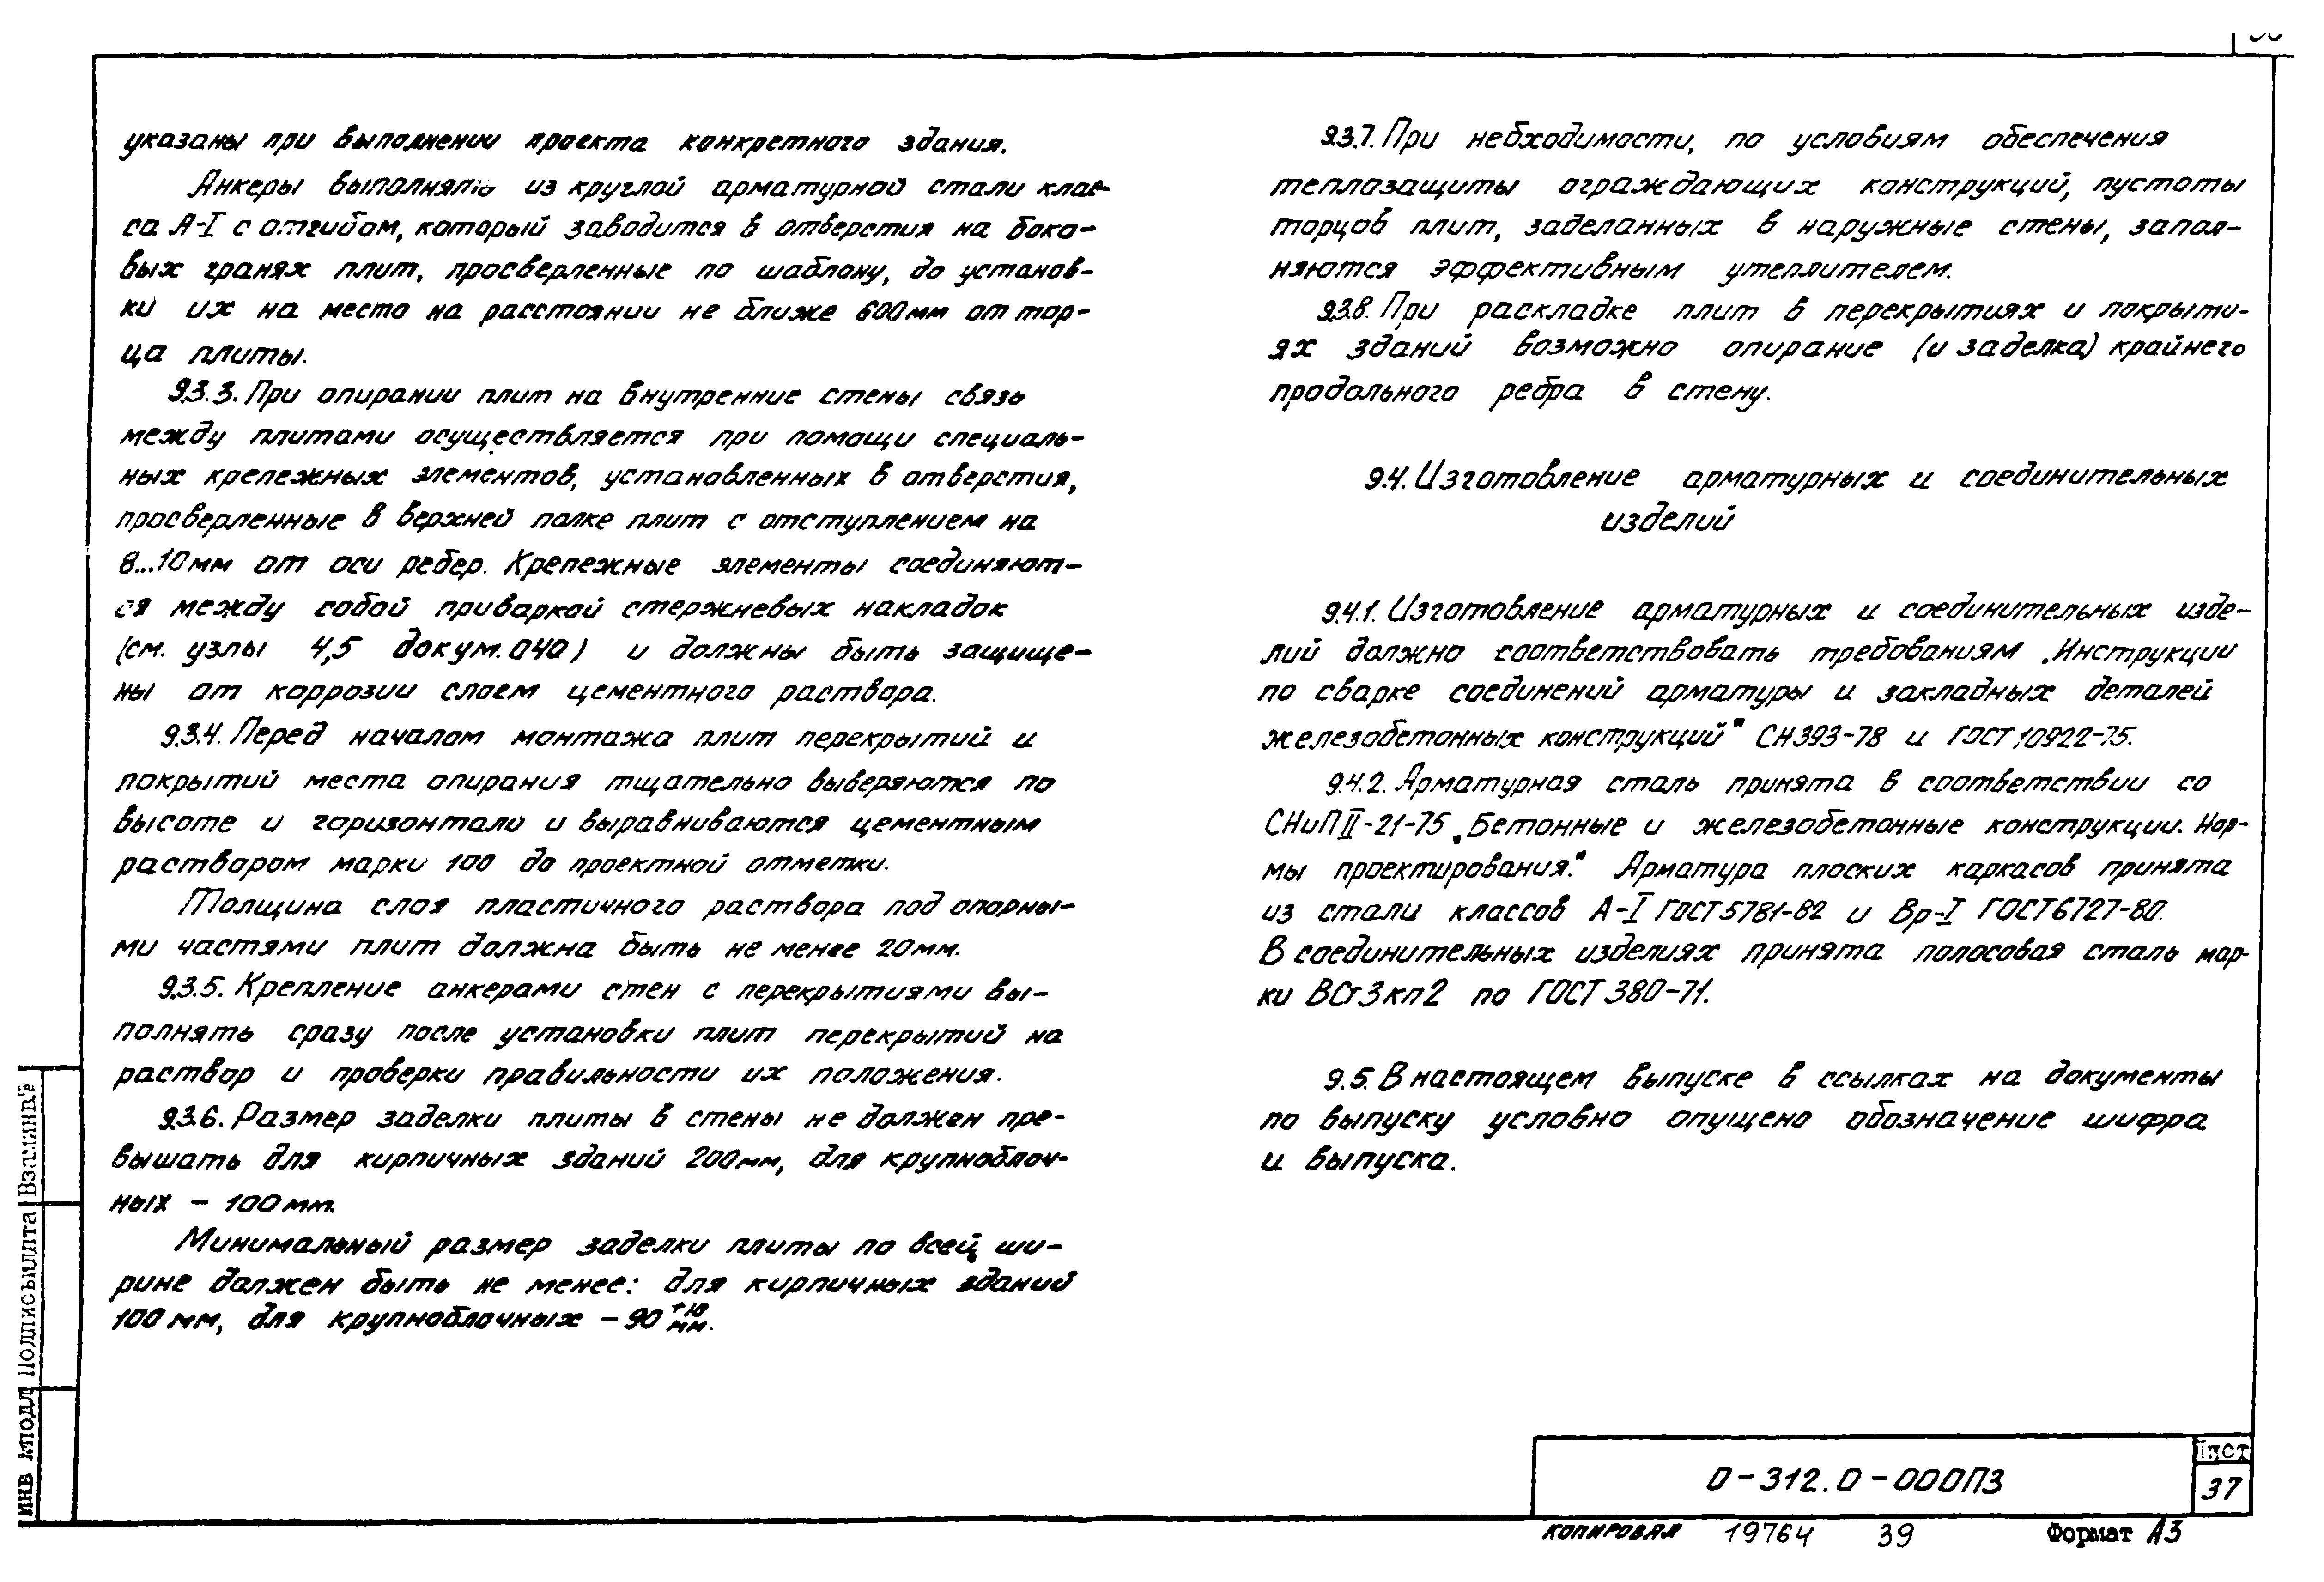 указаны при выполнении проекта конкретного здания.
Анкеры выполнять из круглой арматурной стали клас-
са А-I с отгибом, который заводится в отверстия на боко-
вых гранях плит, просверленные по шаблону, до установ-
ки их на место на расстоянии не ближе 600мм от тор-
ца плиты.
9.3.3. При опирании плит на внутренние стены связь
между плитами осуществляется при помощи специаль-
ных крепежных элементов, установленных в отверстия,
просверленные в верхней полке плит с отступлением на
8...10мм от оси ребер. Крепежные элементы соединяют-
ся между собой приваркой стержневых накладок
(см. узлы 4,5 докум. 040) и должны быть защище-
ны от коррозии слоем цементного раствора.
9.3.4. Перед началом монтажа плит перекрытий и
покрытий места опирания тщательно выверяются по
высоте и горизонтали и выравниваются цементным
раствором марки 100 до проектной отметки.
Толщина слоя пластичного раствора под опорны-
ми частями плит должна быть не менее 20мм.
9.3.5. Крепление анкерами стен с перекрытиями вы-
полнять сразу после установки плит перекрытий на
раствор и проверки правильности их положения.
9.3.6. Размер заделки плиты в стены не должен пре-
вышать для кирпичных зданий 200мм, для крупноблоч-
ных - 100мм.
Минимальный размер заделки плиты по всей ши-
рине должен быть не менее: для кирпичных зданий
100мм, для крупноблочных - 90 +10 мм.
9.3.7. При небходимости, по условиям обеспечения
теплозащиты ограждающих конструкций, пустоты
торцов плит, заделанных в наружные стены, запол-
няются эффективным утеплителем.
9.3.8. При раскладке плит в перекрытиях и покрыти-
ях зданий возможно опирание (и заделка) крайнего
продольного ребра в стену.
9.4. Изготовление арматурных и соединительных
изделий
9.4.1. Изготовление арматурных и соединительных изде-
лий должно соответствовать требованиям „Инструкции
по сварке соединений арматуры и закладных деталей
железобетонных конструкций" СН393-78 и ГОСТ 10922-75.
9.4.2. Арматурная сталь принята в соответствии со
СНиП II-21-75 „Бетонные и железобетонные конструкции. Нор-
мы проектирования". Арматура плоских каркасов принята
из стали классов А-I ГОСТ 5781-82 и Вр-I ГОСТ 6727-80.
В соединительных изделиях принята полосовая сталь мар-
ки ВСт3кп2 по ГОСТ 380-71.
9.5. В настоящем выпуске в ссылках на документы
по выпуску условно опущено обозначение шифра
и выпуска.
Инв №подл Подпись и дата Взам инв №
0-312.0-000ПЗ
Лист
37
Копировал 19764 39 Формат А3